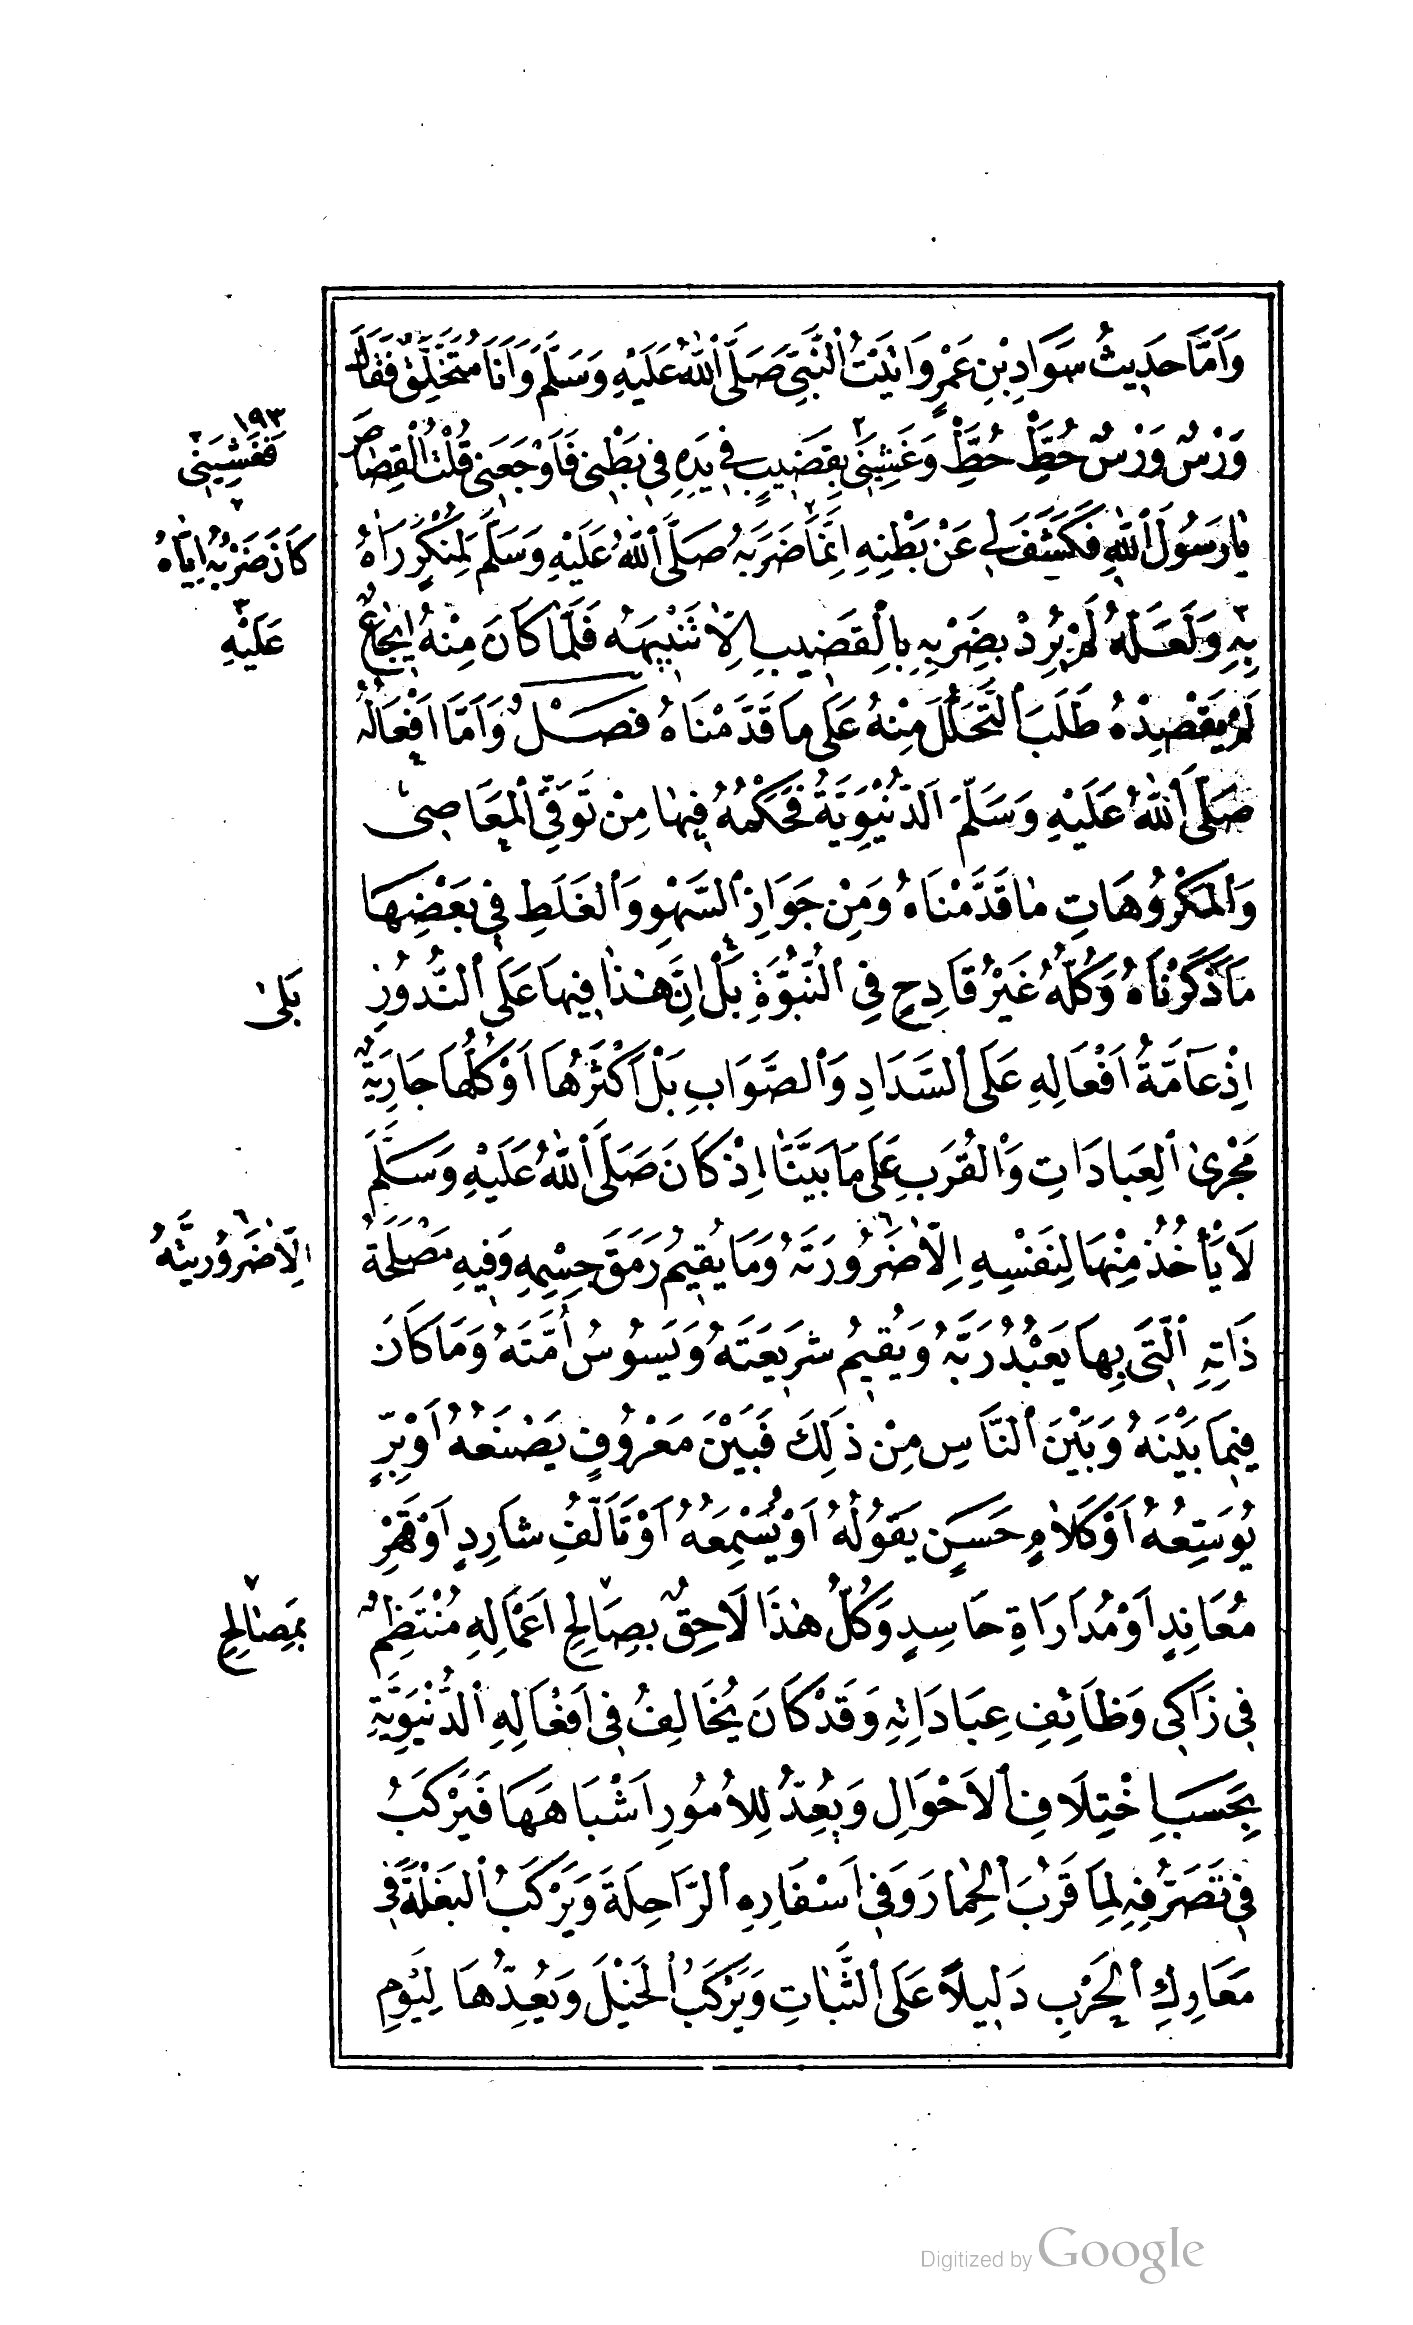 وَاَمَّا حَدِيثُ سَوَادِ بْنِ عَمْرٍو اَتَيْتُ النَّبِىَّ صَلَّى اللّٰهُ عَلَيْهِ وَسَلَّمَ وَاَنَا مُتَخَلِّقٌ فَقَالَ
وَرْسٌ وَرْسٌ حُطَّ حُطَّ وَغَشِيَنِى٢ بِقَضِيبٍ فِى يَدِهِ فِى بَطْنِى فَاَوْجَعَنِى قُلْتُ الْقِصَاصَ
يَا رَسُولَ اللّٰهِ فَكَشَفَ لِى عَنْ بَطْنِهِ اِنَّمَا ٢ضَرَبَهُ صَلَّى اللّٰهُ عَلَيْهِ وَسَلَّمَ لِمُنْكَرٍ رَاٰهُ
بِهِ٣ وَلَعَلَّهُ لَمْ يُرِدْ بِضَرْبِهِ بِالْقَضِيبِ اِلَّا تَنْبِيهَهُ فَلَمَّا كَانَ مِنْهُ اِيجَاعٌ
لَمْ يَقْصِدْهُ طَلَبَ التَّحَلُّلَ مِنْهُ عَلَى مَا قَدَّمْنَاهُ فَصْلٌ وَاَمَّا اَفْعَالُهُ
صَلَّى اللّٰهُ عَلَيْهِ وَسَلَّمَ الدُّنْيَوِيَّةُ فَحُكْمُهُ فِيهَا مِنْ تَوَقِّى الْمَعَاصِى
وَالْمَكْرُوهَاتِ مَا قَدَّمْنَاهُ وَمِنْ جَوَازِ السَّهْوِ وَالْغَلَطِ فِى بَعْضِهَا
مَا ذَكَرْنَاهُ وَكُلُّهُ غَيْرُ قَادِحٍ فِى النُّبُوَّةِ بَلْ٤ اِنَّ هٰذَا فِيهَا عَلَى النُّدُورِ
اِذْ عَامَّةُ اَفْعَالِهِ عَلَى السَّدَادِ وَالصَّوَابِ بَلْ اَكْثَرُهَا اَوْ كُلُّهَا جَارِيَةٌ
مَجْرَى الْعِبَادَاتِ وَالْقُرَبِ عَلَى مَا بَيَّنَّا اِذْ كَانَ صَلَّى اللّٰهُ عَلَيْهِ وَسَلَّمَ
لَا يَأْخُذُ مِنْهَا لِنَفْسِهِ اِلَّا ضَرُورَتَهُ٦ وَمَا يُقِيمُ رَمَقَ جِسْمِهِ وَفِيهِ مَصْلَحَةُ
ذَاتِهِ الَّتِى بِهَا يَعْبُدُ رَبَّهُ وَيُقِيمُ شَرِيعَتَهُ وَيَسُوسُ اُمَّتَهُ وَمَا كَانَ
فِيمَا بَيْنَهُ وَبَيْنَ النَّاسِ مِنْ ذٰلِكَ فَبَيْنَ مَعْرُوفٍ يَصْنَعُهُ اَوْ بِرٍّ
يُوَسِّعُهُ اَوْ كَلَامٍ حَسَنٍ يَقُولُهُ اَوْ يُسْمِعُهُ اَوْ تَاَلُّفِ شَارِدٍ اَوْ قَهْرِ
مُعَانِدٍ اَوْ مُدَارَاةِ حَاسِدٍ وَكُلُّ هٰذَا لَاحِقٌ بِصَالِحِ٧ اَعْمَالِهِ مُنْتَظِمٌ
فِى زَاكِى وَظَائِفِ عِبَادَاتِهِ وَقَدْ كَانَ يُخَالِفُ فِى اَفْعَالِهِ الدُّنْيَوِيَّةِ
بِحَسَبِ اخْتِلَافِ الْاَحْوَالِ وَيُعِدُّ لِلْاُمُورِ اَشْبَاهَهَا فَيَرْكَبُ
فِى تَصَرُّفِهِ لِمَا قَرُبَ الْحِمَارَ وَفِى اَسْفَارِهِ الرَّاحِلَةَ وَيَرْكَبُ الْبَغْلَةَ فِى
مَعَارِكِ الْحَرْبِ دَلِيلًا عَلَى الثَّبَاتِ وَيَرْكَبُ الْخَيْلَ وَيُعِدُّهَا لِيَوْمِ
١٩٣
فَغَشِيَنِى
٢
كَانَ ضَرْبُهُ اِيَّاهُ
٣
عَلَيْهِ
بَلَى
٦
اِلَّا ضَرُورِيَّتَهُ
٧
بِمَصَالِحِ
Digitized by Google